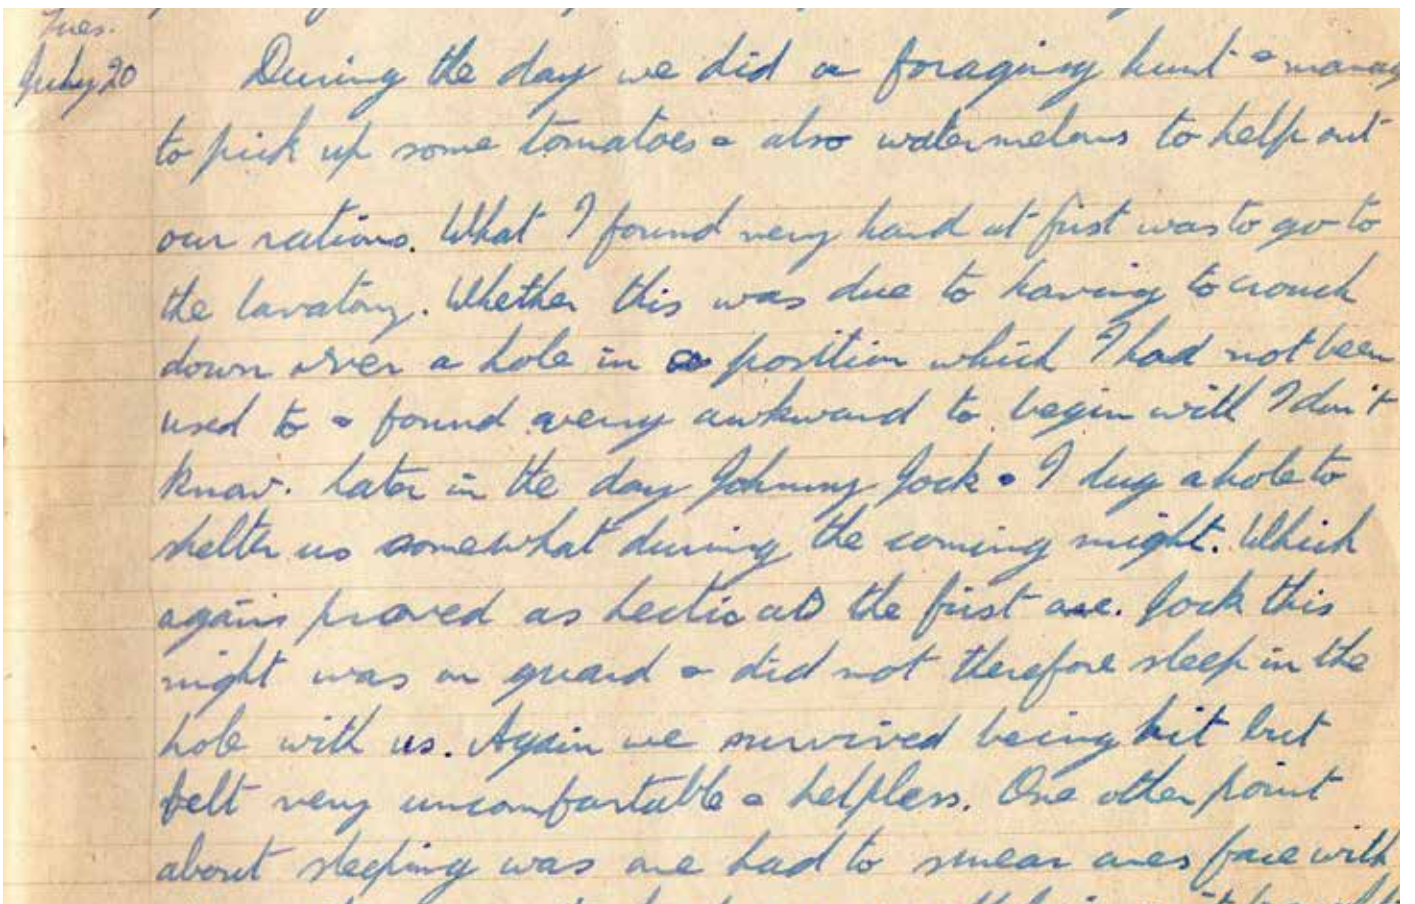 Tues.
July 20
During the day we did a foraging hunt & manag
to pick up some tomatoes & also watermelons to help out
our rations. What I found very hard at first was to go to
the lavatory. Whether this was due to having to crouch
down over a hole in a position which I had not been
used to & found very awkward to begin with I don't
know. Later in the day Johnny Jock & I dug a hole to
shelter us somewhat during the coming night. Which
again proved as hectic as the first one. Jock this
night was on guard & did not therefore sleep in the
hole with us. Again we survived being hit but
felt very uncomfortable & helpless. One other point
about sleeping was one had to smear ones face with